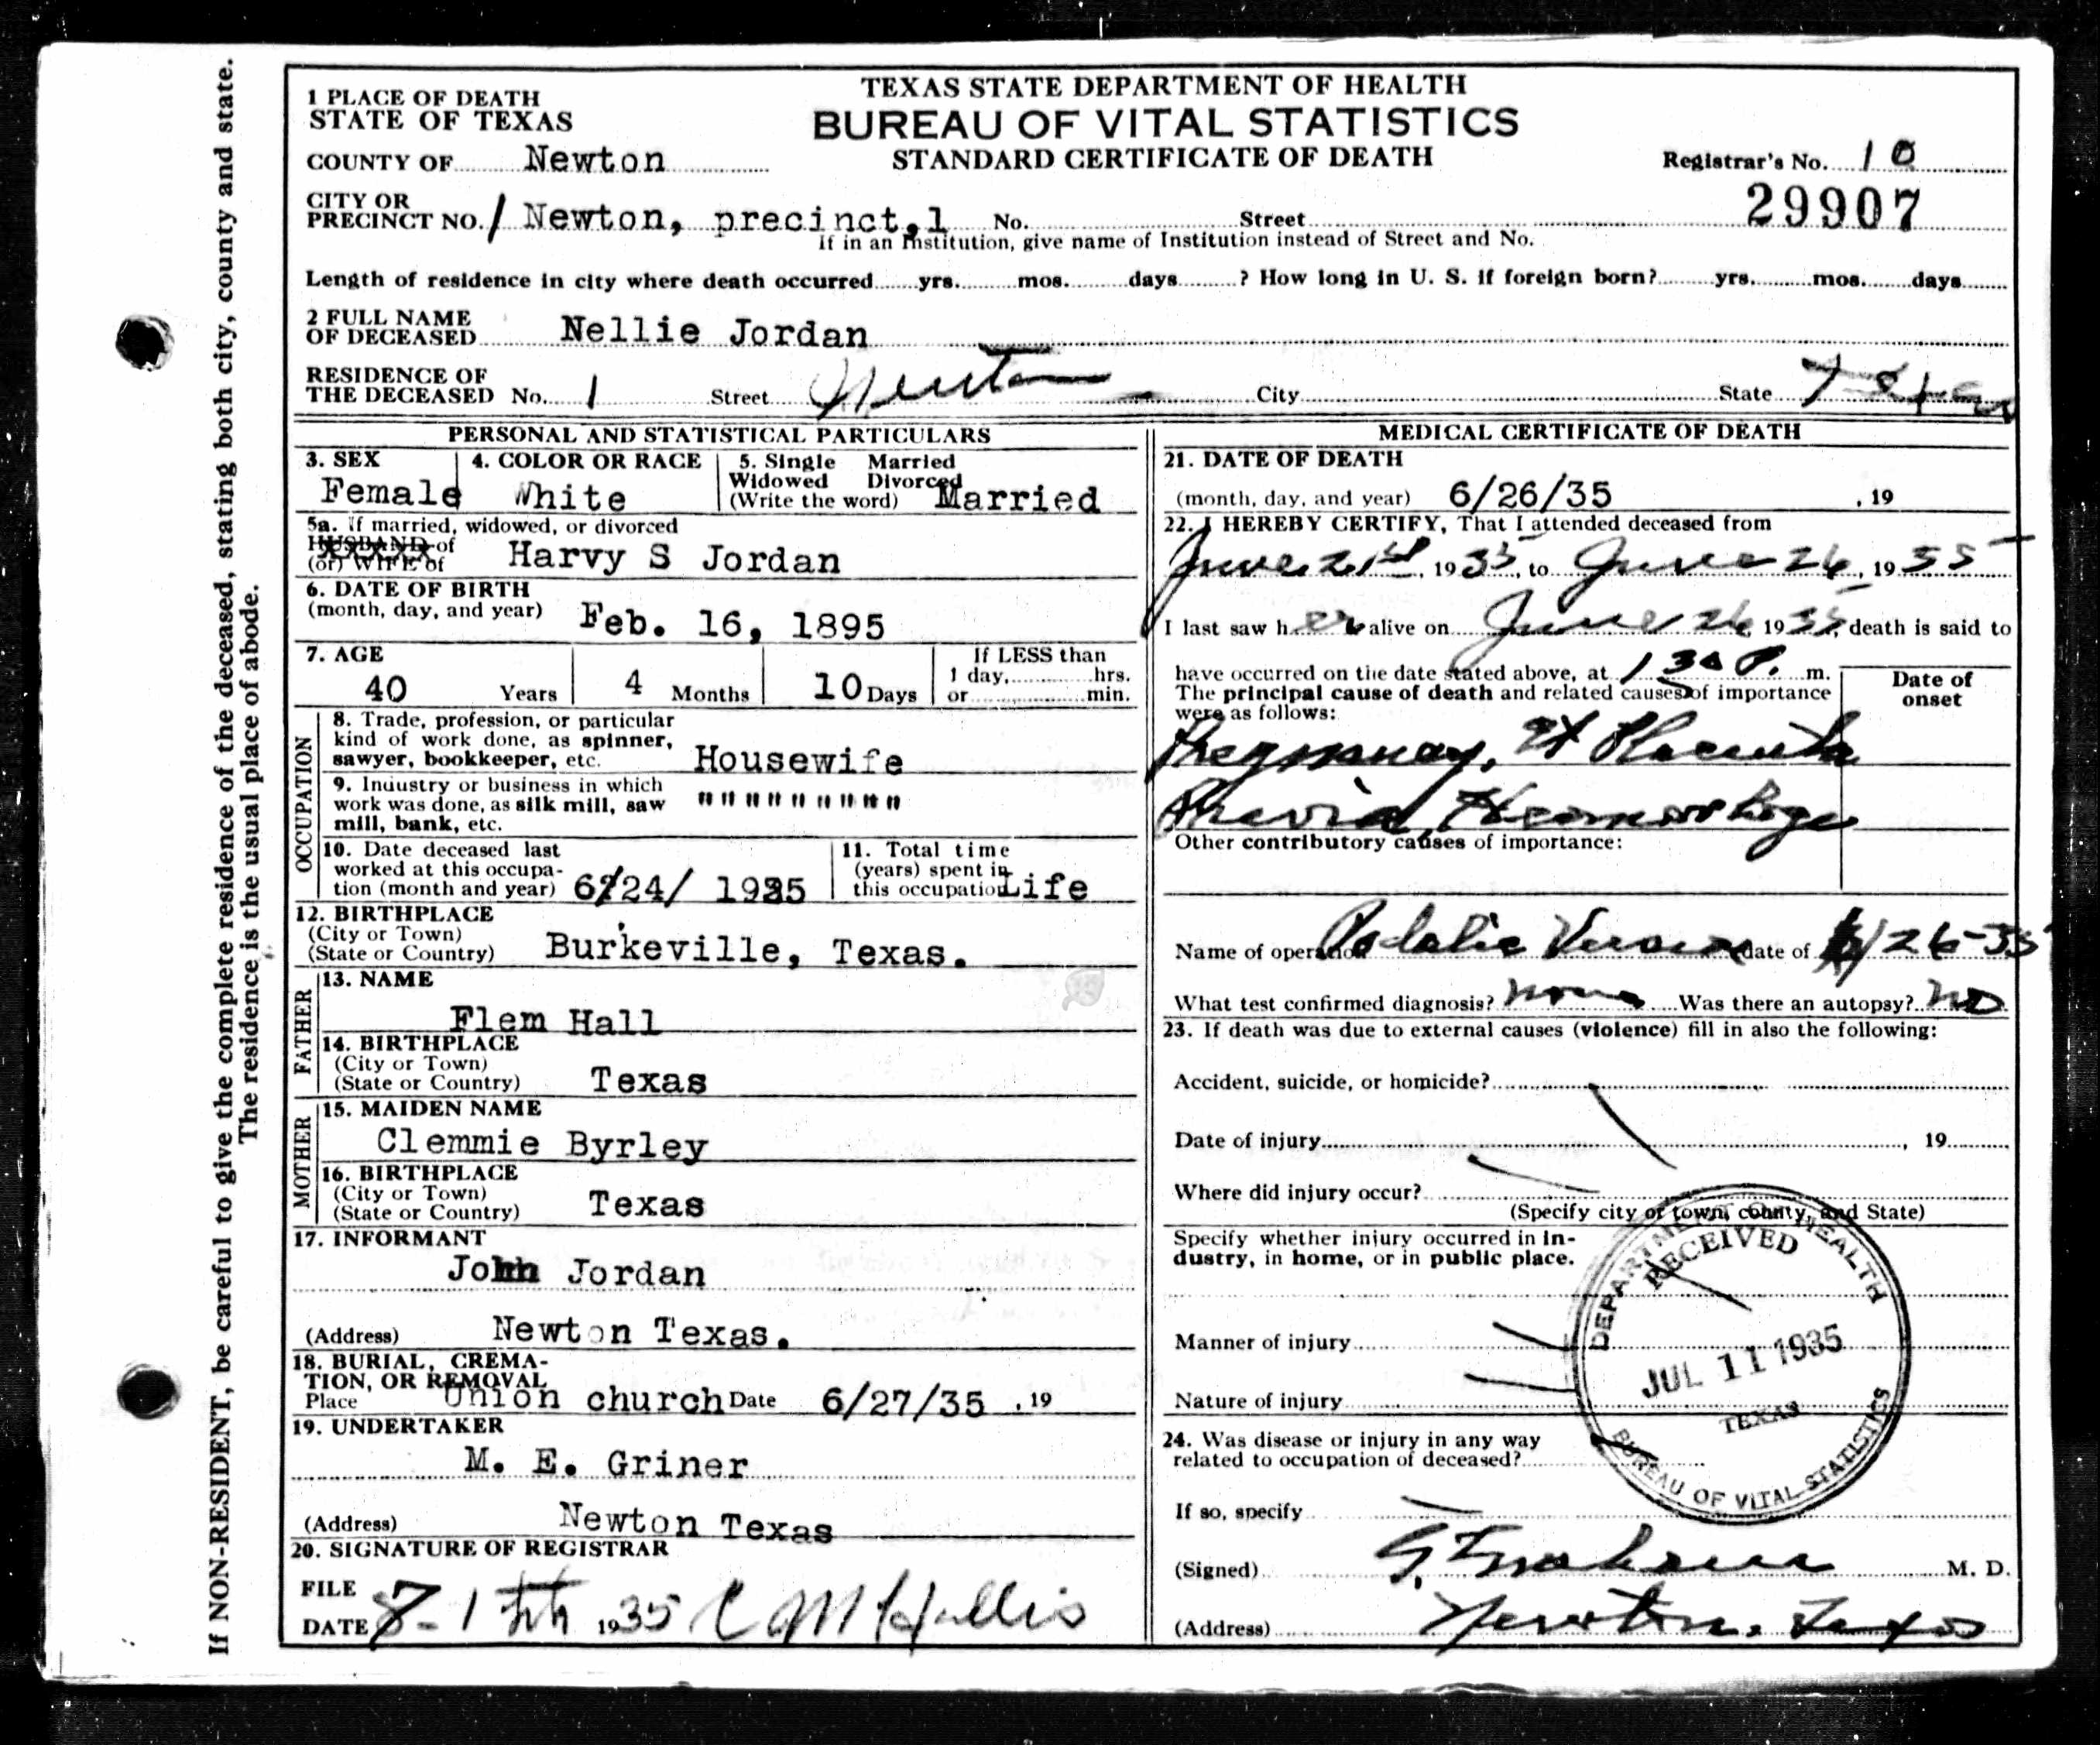 TEXAS STATE DEPARTMENT OF HEALTH
BUREAU OF VITAL STATISTICS
STANDARD CERTIFICATE OF DEATH
1 PLACE OF DEATH
STATE OF TEXAS
COUNTY OF Newton
Registrar's No. 10
29907
CITY OR
PRECINCT NO. 1 Newton, precinct,1 No. Street
If in an Institution, give name of Institution instead of Street and No.
Length of residence in city where death occurred yrs. mos. days ? How long in U. S. if foreign born? yrs. mos. days
2 FULL NAME
OF DECEASED Nellie Jordan
RESIDENCE OF
THE DECEASED No. 1 Street Newton City State Texas
PERSONAL AND STATISTICAL PARTICULARS
3. SEX
Female
4. COLOR OR RACE
White
5. Single Married
Widowed Divorced
(Write the word) Married
5a. If married, widowed, or divorced
HUSBAND of
(or) WIFE of Harvy S Jordan
6. DATE OF BIRTH
(month, day, and year) Feb. 16, 1895
7. AGE
40 Years 4 Months 10 Days
If LESS than
1 day, hrs.
or min.
OCCUPATION
8. Trade, profession, or particular
kind of work done, as spinner,
sawyer, bookkeeper, etc. Housewife
9. Industry or business in which
work was done, as silk mill, saw
mill, bank, etc. " " " " " " " " "
10. Date deceased last
worked at this occupa-
tion (month and year) 6/24/ 1935
11. Total time
(years) spent in
this occupation Life
12. BIRTHPLACE
(City or Town)
(State or Country) Burkeville, Texas.
FATHER
13. NAME
Flem Hall
14. BIRTHPLACE
(City or Town)
(State or Country) Texas
MOTHER
15. MAIDEN NAME
Clemmie Byrley
16. BIRTHPLACE
(City or Town)
(State or Country) Texas
17. INFORMANT
John Jordan
(Address) Newton Texas.
18. BURIAL, CREMA-
TION, OR REMOVAL
Place Union church Date 6/27/35 , 19
19. UNDERTAKER
M. E. Griner
(Address) Newton Texas
20. SIGNATURE OF REGISTRAR
FILE
DATE 1935 C M Hollis
MEDICAL CERTIFICATE OF DEATH
21. DATE OF DEATH
(month, day, and year) 6/26/35 , 19
22. I HEREBY CERTIFY, That I attended deceased from
June 21st, 1935, to June 26, 1935
I last saw her alive on June 26, 1935, death is said to
have occurred on the date stated above, at 130 P. m.
The principal cause of death and related causes of importance
were as follows:
Date of
onset
Pregnancy, Placenta
Previa Hemorrhage
Other contributory causes of importance:
Name of operation Podalic Version date of 6/26-35
What test confirmed diagnosis? none Was there an autopsy? no
23. If death was due to external causes (violence) fill in also the following:
Accident, suicide, or homicide?
Date of injury , 19
Where did injury occur?
(Specify city or town, county, and State)
Specify whether injury occurred in in-
dustry, in home, or in public place.
Manner of injury
Nature of injury
24. Was disease or injury in any way
related to occupation of deceased?
If so, specify
(Signed) M. D.
(Address) Newton, Texas
DEPARTMENT OF HEALTH
RECEIVED
JUL 11 1935
TEXAS
BUREAU OF VITAL STATISTICS
If NON-RESIDENT, be careful to give the complete residence of the deceased, stating both city, county and state.
The residence is the usual place of abode.